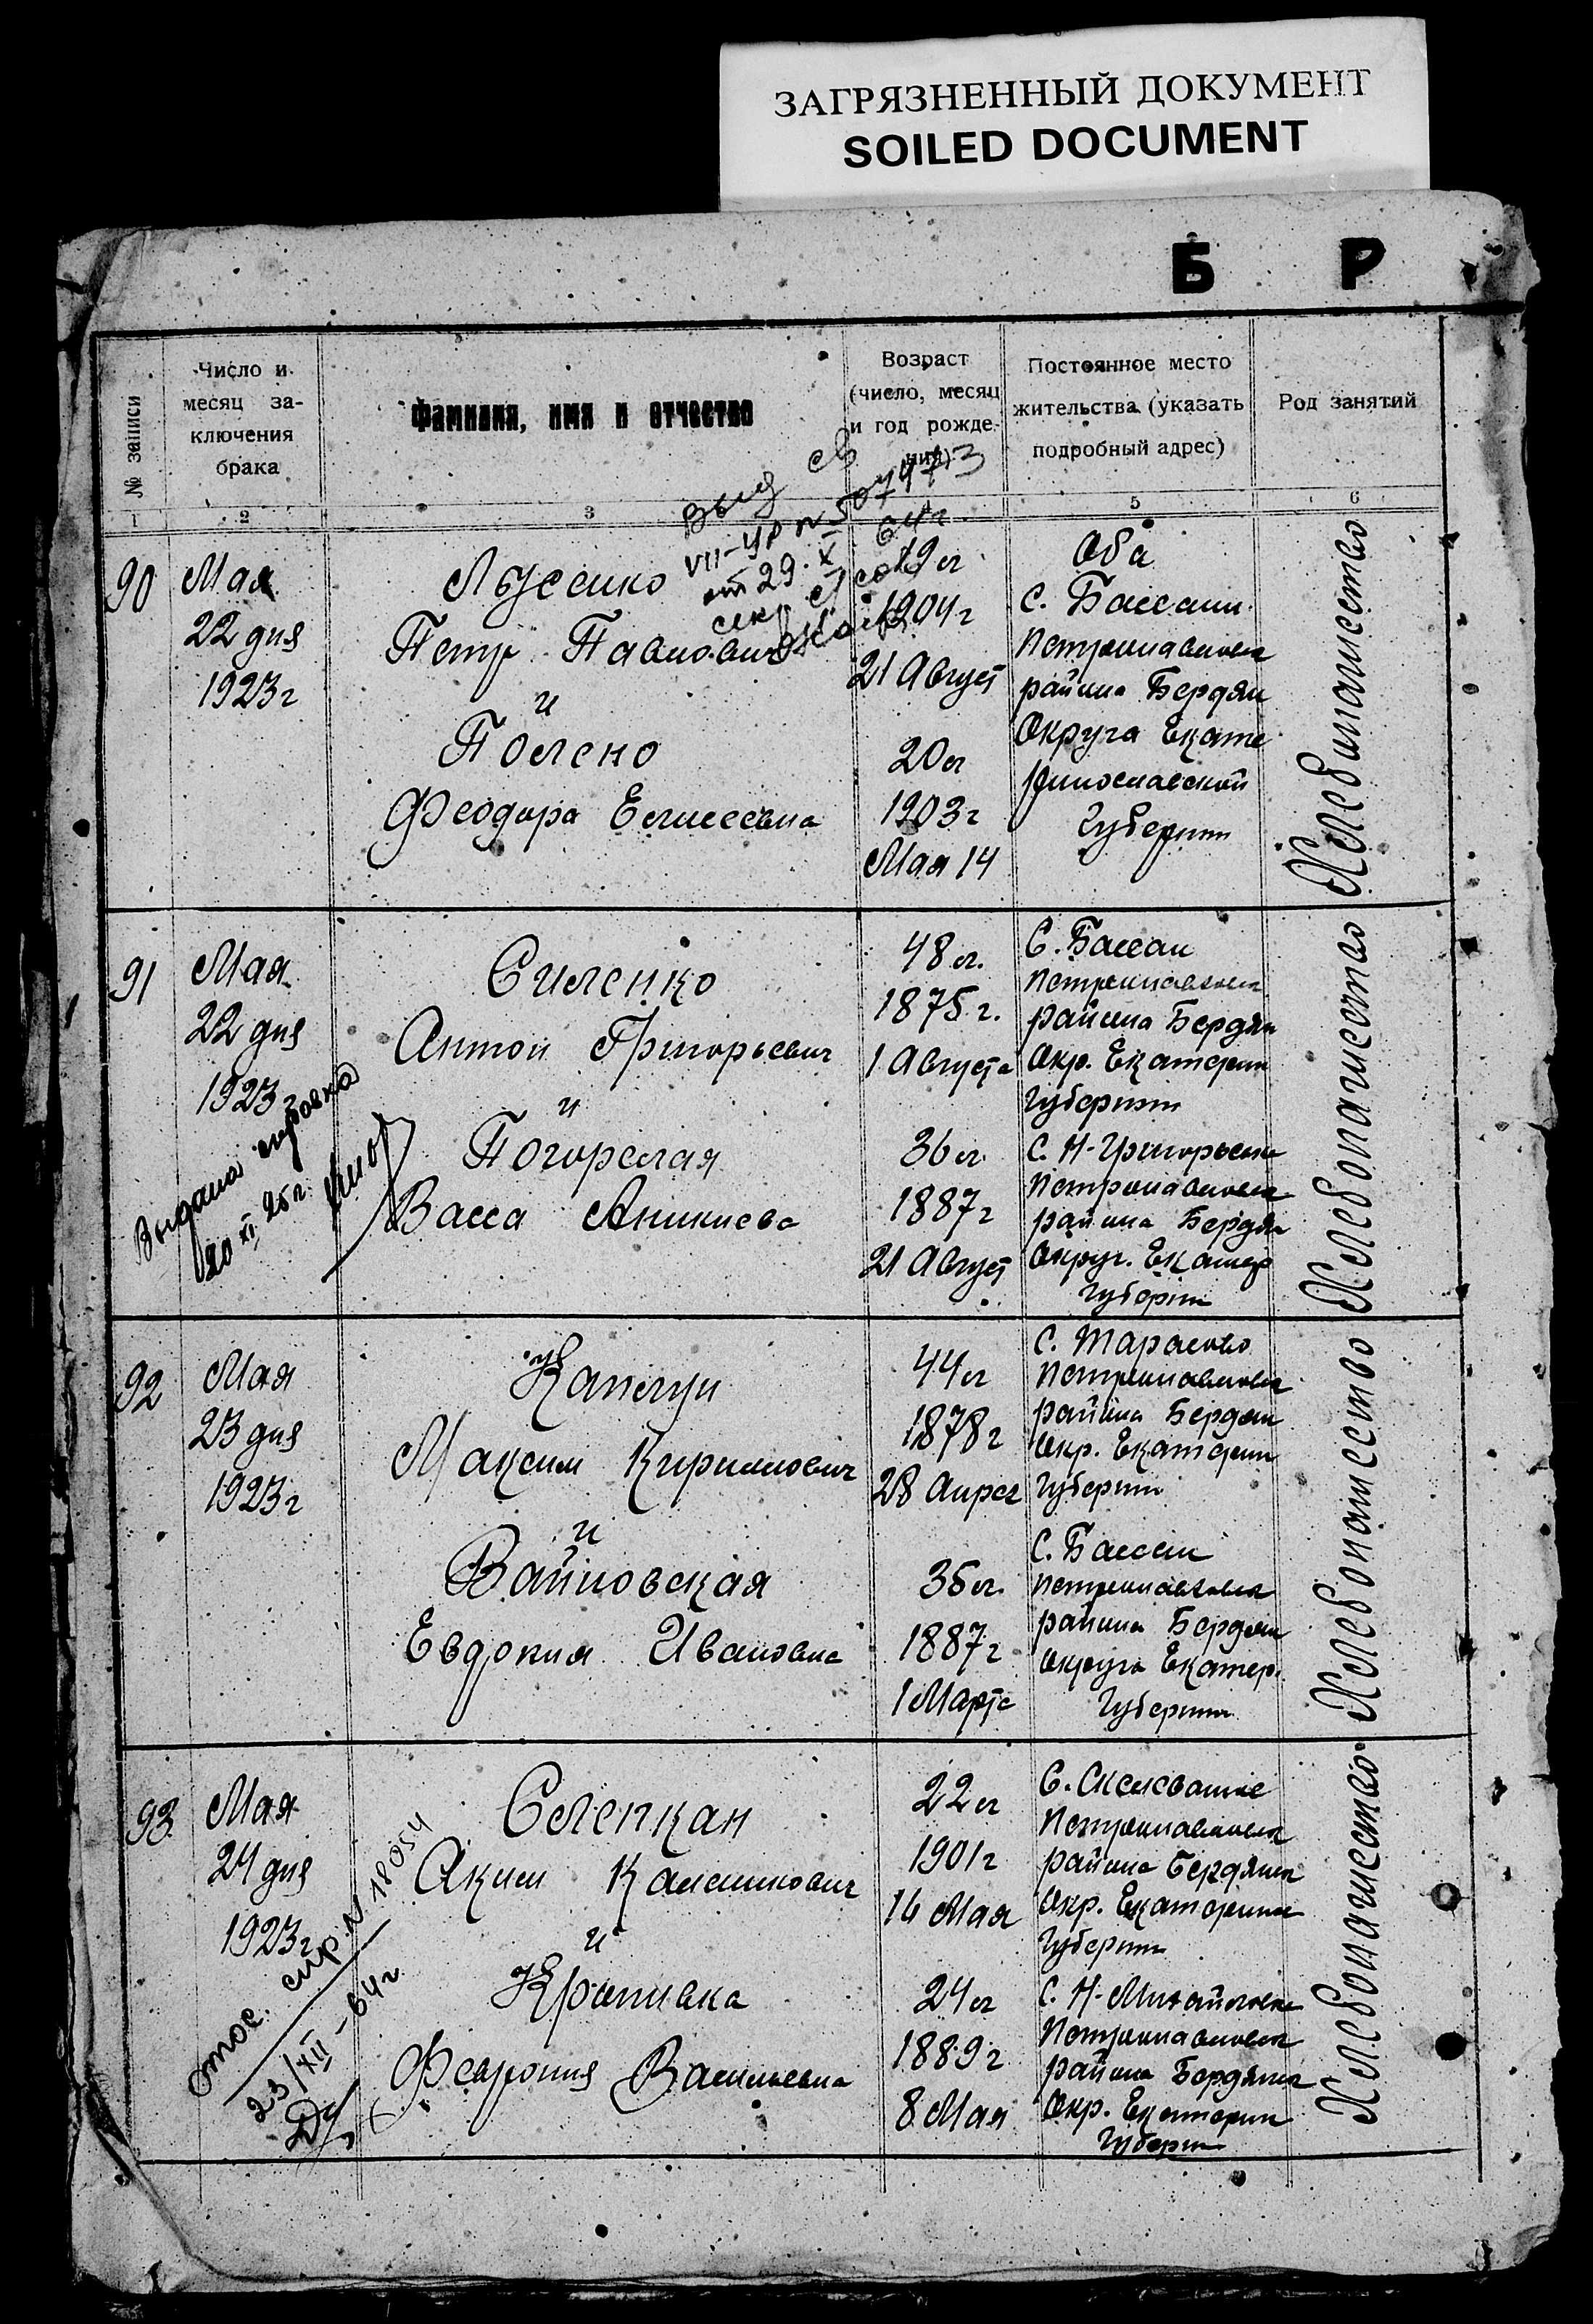 ЗАГРЯЗНЕННЫЙ ДОКУМЕНТ
SOILED DOCUMENT
Б Р
№ записи
Число и месяц за-
ключения
брака
Фамилия, имя и отчество
Возраст
(число, месяц
и год рожде-
ния)
Постоянное место
жительства (указать
подробный адрес)
Род занятий
1 2 3 5 6
выд св
VII-ЧР № 507473
от 29.X 64г
90
Мая
22 дня
1923г
Лысенко
Петр Павлович
и
Полено
Феодора Елисеевна
19 л
1904г
21 Август
20 л
1903г
Мая 14
Оба
с. Бассань
Петропавловск
района Бердян
Округа Екате
ринославской
Губернии
Хлебопашество
91
Мая
22 дня
1923г
Выдана справка
20 XI 25г.
Силенко
Антон Григорьевич
и
Погорелая
Васса Аникиева
48 л.
1875 г.
1 Августа
36 л.
1887г
21 Август
С. Бассан
Петропавловск
района Бердян
Окр. Екатерин
Губернии
С. Н-Григорьевка
Петропавловск
района Бердян
Округ. Екатер
Губерни
Хлебопашество
92
Мая
23 дня
1923г
Каплун
Максим Кириллович
и
Войновская
Евдокия Ивановна
44 л
1878г
28 Апрел
35 л.
1887г
1 Марта
С. Тарасово
Петропавловск
района Бердян
Окр. Екатерин
Губернии
С. Бассан
Петропавловск
района Бердян
Округа Екатер.
Губернии
Хлебопашество
93
Мая
24 дня
1923г
отос. спр. № 18054
23/XII-64г
Слепкан
Аким Калиникович
и
Кропивка
Феврония Васильевна
22 л
1901г
16 Мая
24 л
1889г
8 Мая
С. Скелеватое
Петропавловск
района Бердянск
Окр. Екатерин
Губернии
С. Н-Михайловка
Петропавловск
района Бердянск
Окр. Екатерин
Губерни
Хлебопашество